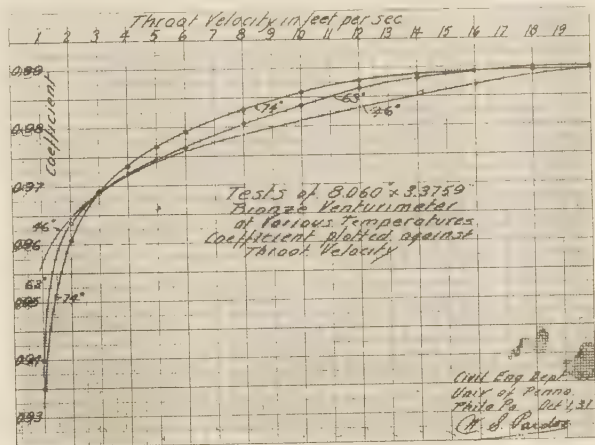 Throat Velocity in feet per sec
1 2 3 4 5 6 7 8 9 10 11 12 13 14 15 16 17 18 19
0.99
coefficient
74°
63°
46°
0.98
0.97
Tests of 8.060" x 3.3759
Bronze Venturimeter
at Various Temperatures
Coefficient plotted against
Throat Velocity
46°
0.96
63°
74°
0.95
0.93
Civil Eng Dept
Univ of Penna
Phila Pa Oct 1, 31
W S Pardoe